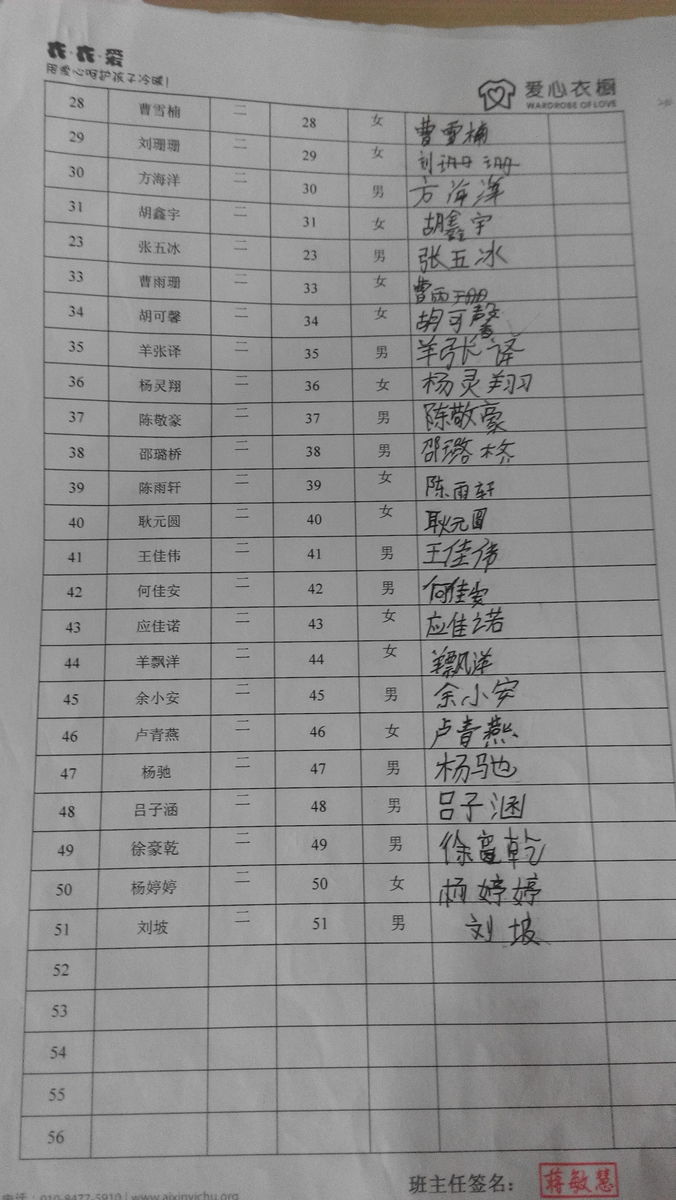 衣·衣·爱
用爱心呵护孩子冷暖!
爱心衣橱
WARDROBE OF LOVE
28 曹雪楠 二 28 女 曹雪楠
29 刘珊珊 二 29 女 刘珊珊
30 方海洋 二 30 男 方海洋
31 胡鑫宇 二 31 女 胡鑫宇
23 张五冰 二 23 男 张五冰
33 曹雨珊 二 33 女 曹雨珊
34 胡可馨 二 34 女 胡可馨
35 羊张译 二 35 男 羊张译
36 杨灵翔 二 36 女 杨灵翔
37 陈敬豪 二 37 男 陈敬豪
38 邵璐桥 二 38 男 邵璐桥
39 陈雨轩 二 39 女 陈雨轩
40 耿元圆 二 40 女 耿元圆
41 王佳伟 二 41 男 王佳伟
42 何佳安 二 42 男 何佳安
43 应佳诺 二 43 女 应佳诺
44 羊飘洋 二 44 女 羊飘洋
45 余小安 二 45 男 余小安
46 卢青燕 二 46 女 卢青燕
47 杨驰 二 47 男 杨驰
48 吕子涵 二 48 男 吕子涵
49 徐豪乾 二 49 男 徐豪乾
50 杨婷婷 二 50 女 杨婷婷
51 刘坡 二 51 男 刘坡
52
53
54
55
56
班主任签名: 蒋敏慧
电话:010-8477-5910 | www.aixinyichu.org